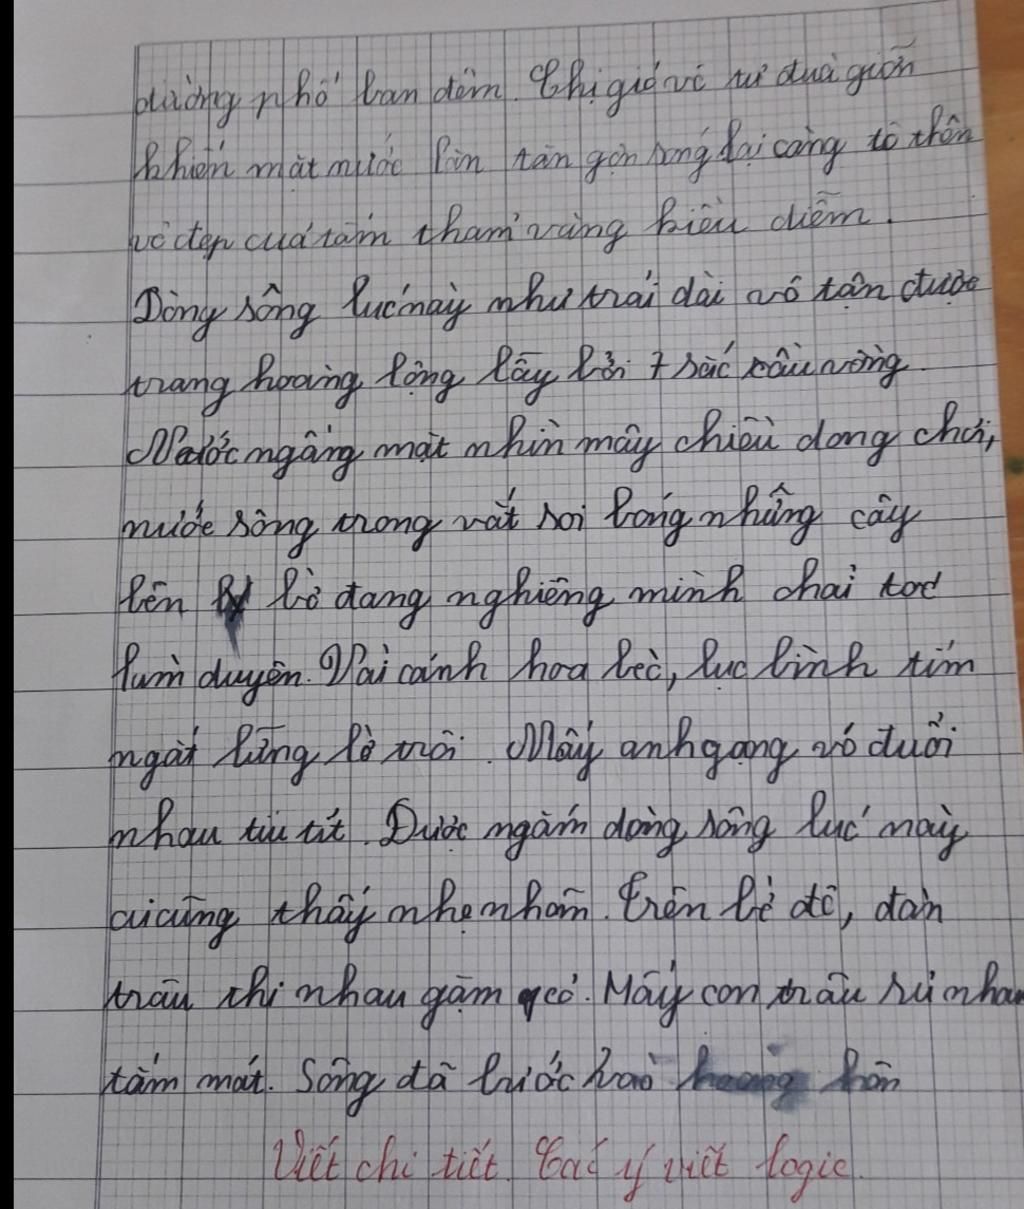 đường phố ban đêm. Chị gió về tư đưa giỡn
khiến mặt nước lăn tăn gợn sóng lại càng tô thên
vẻ đẹp của tấm thảm vàng kiều diễm.
Dòng sông lúc này như trải dài vô tận được
trang hoàng lộng lẫy bởi 7 sắc cầu vồng.
Nước ngẩng mặt nhìn mây chiều dong chơi,
nước sông trong vắt soi bóng những cây
bên bờ đang nghiêng mình chải tod
làm duyên. Vài cánh hoa bèo, lục bình tím
ngát lững lờ trôi. Mấy anh gọng vó đuổi
nhau tíu tít. Được ngắm dòng sông lúc này
ai cũng thấy nhẹ nhõm. Trên bờ đê, đàn
trâu thi nhau gặm cỏ. Mấy con trâu rủ nhau
tắm mát. Sông đã bước vào hôn
Viết chi tiết. Các ý viết logic.